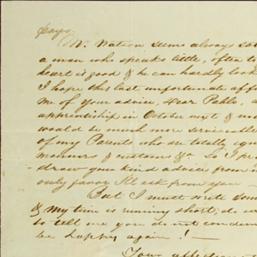 days
Mr Watson seems always so
a man who speaks little, often to
heart is good & he can hardly look
I hope this last unfortunate aff
me of your advice, dear Pablo, a
apprenticeship in October next & no
would be much more serviceable
of my Parents who are totally ign
manners & customs &c. So I pr
draw your kind advice from
only favor I'll ask from you —
But I must write some
& my time is running short; do w
to tell me you do not condem
be happy again! —
Your affection